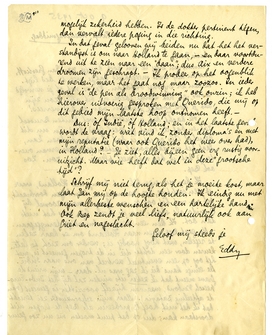 mogelijk zekerheid hebben. Is de dokter pertinent tegen,
dan vervalt iedere poging in die richting.
In dat geval gelooven wij beiden nu dat het het ver-
standigst is om naar Holland te gaan, en daar voort
uit te zien naar een "baan"; dus Aix en verdere
droomen zijn geschrapt. Ik probeer op het oogenblik
te werken, maar het gaat nog maar zoozoo. In ieder
geval is 'de pen als broodwinning' ook onzin; ik heb
hierover uitvoerig gesproken met Querido, die mij op
dit gebied mijn laatste hoop ontnomen heeft.
Dus: of Indië, of Holland; en in het laatste geval
wordt de vraag: wat vind ik, zonder diploma's en met
mijn reputatie (waar ook Querido het mee eens had),
in Holland? Je ziet, alles bijeen geen erg rustig voor-
uitzicht. Maar wie heeft dat wel in deze "grootsche
tijd"?
Schrijf mij niet terug als het je moeite kost, maar
laat Jan mij op de hoogte houden. Ik eindig nu met
mijn allerbeste wenschen en een hartelijke hand.
Ook Bep zendt je veel liefs, natuurlijk ook aan
Griet en nageslacht.
Geloof mij steeds je
Eddy